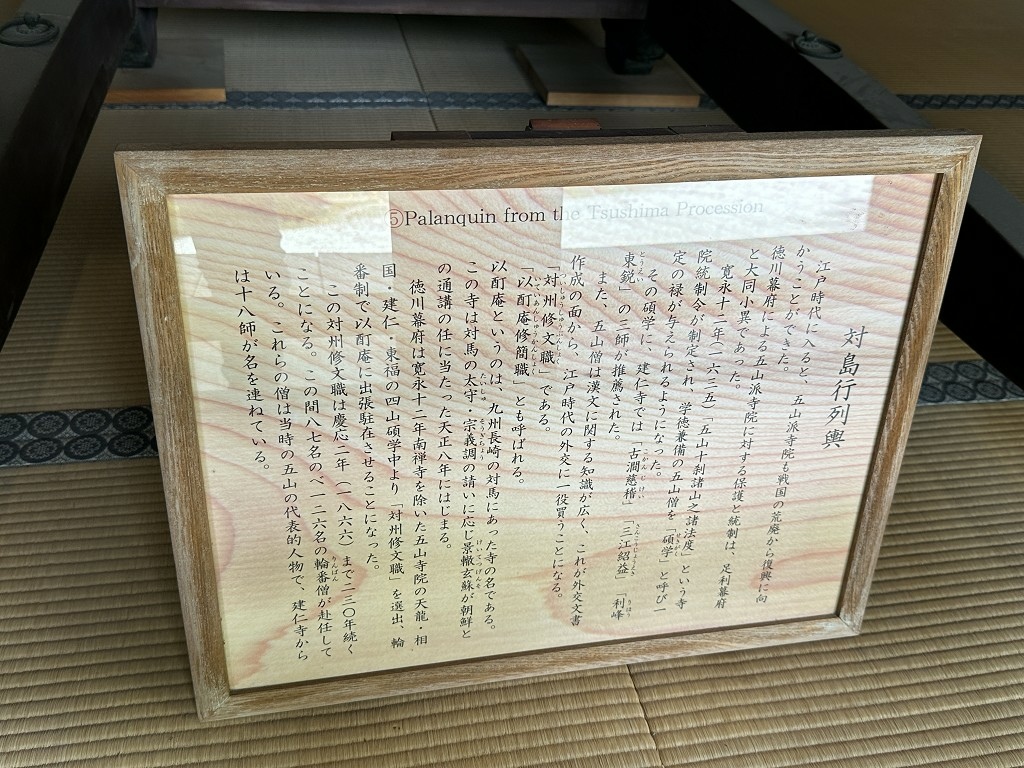 ⑤Palanquin from the Tsushima Procession
対島行列輿
江戸時代に入ると、五山派寺院も戦国の荒廃から復興に向
かうことができた。
徳川幕府による五山派寺院に対する保護と統制は、足利幕府
と大同小異であった。
寛永十二年(一六三五)「五山十刹諸山之諸法度」という寺
院統制令が制定され、学徳兼備の五山僧を「碩学」と呼び一
定の禄が与えられるようになった。
その碩学に、建仁寺では「古澗慈稽」「三江紹益」「利峰
東鋭」の三師が推薦された。
また、五山僧は漢文に関する知識が広く、これが外交文書
作成の面から、江戸時代の外交に一役買うことになる。
「対州修文職」である。
「以酊庵修簡職」とも呼ばれる。
以酊庵というのは、九州長崎の対馬にあった寺の名である。
この寺は対馬の太守・宗義調の請いに応じ景轍玄蘇が朝鮮と
の通講の任に当たった天正八年にはじまる。
徳川幕府は寛永十二年南禅寺を除いた五山寺院の天龍・相
国・建仁・東福の四山碩学中より「対州修文職」を選出、輪
番制で以酊庵に出張駐在させることになった。
この対州修文職は慶応二年(一八六六)まで二三〇年続く
ことになる。この間八七名のべ一二六名の輪番僧が赴任して
いる。これらの僧は当時の五山の代表的人物で、建仁寺から
は十八師が名を連ねている。